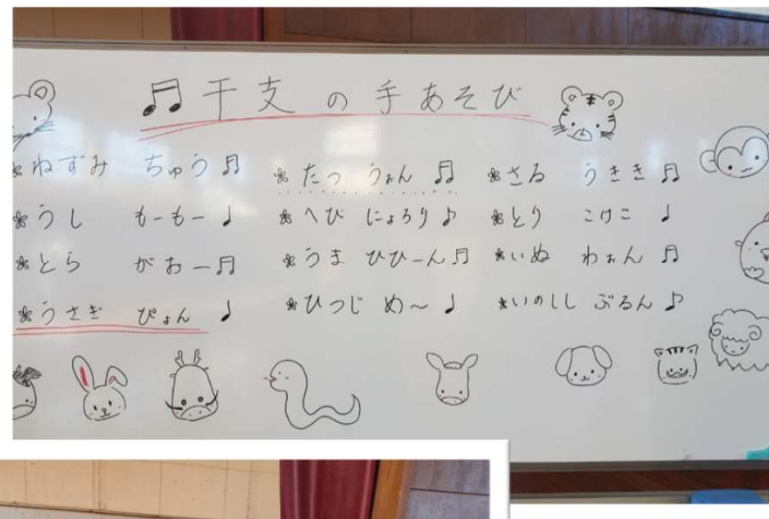 ♫ 干支の手あそび
❀ねずみ ちゅう♫
❀うし もーもー♩
❀とら がおー♫
❀うさぎ ぴょん♩
❀たつ うぉん♫
❀へび にょろり♪
❀うま ひひーん♫
❀ひつじ め〜♩
❀さる うきき♫
❀とり こけこ♩
❀いぬ わぉん♫
❀いのしし ぶるん♪